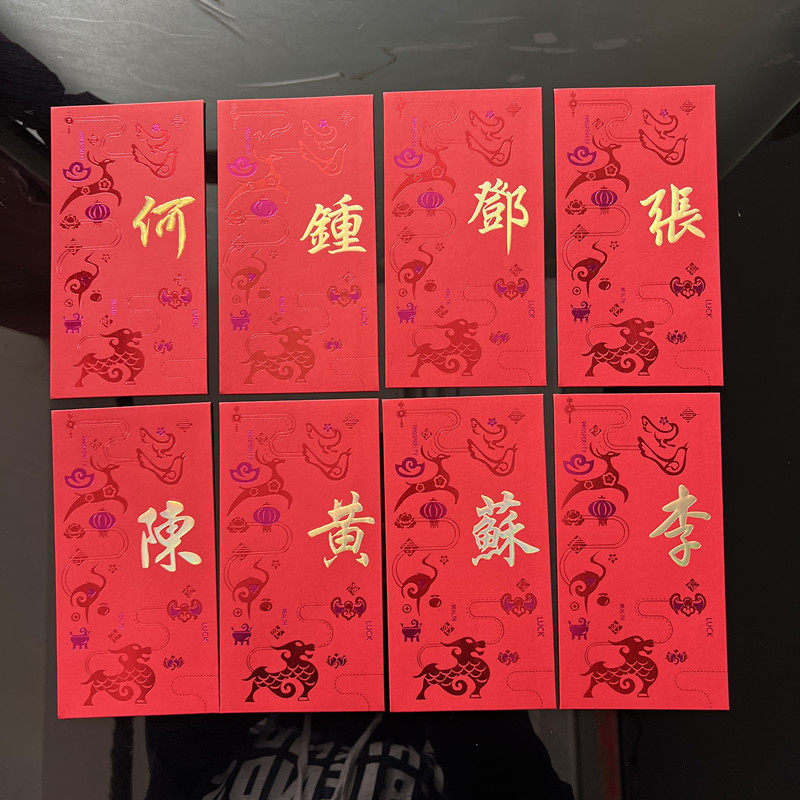 何
PROSPERITY
HEALTH
LUCK
鍾
PROSPERITY
HEALTH
LUCK
鄧
PROSPERITY
HEALTH
LUCK
張
PROSPERITY
HEALTH
LUCK
陳
PROSPERITY
HEALTH
LUCK
黃
PROSPERITY
HEALTH
LUCK
蘇
PROSPERITY
HEALTH
LUCK
李
PROSPERITY
HEALTH
LUCK